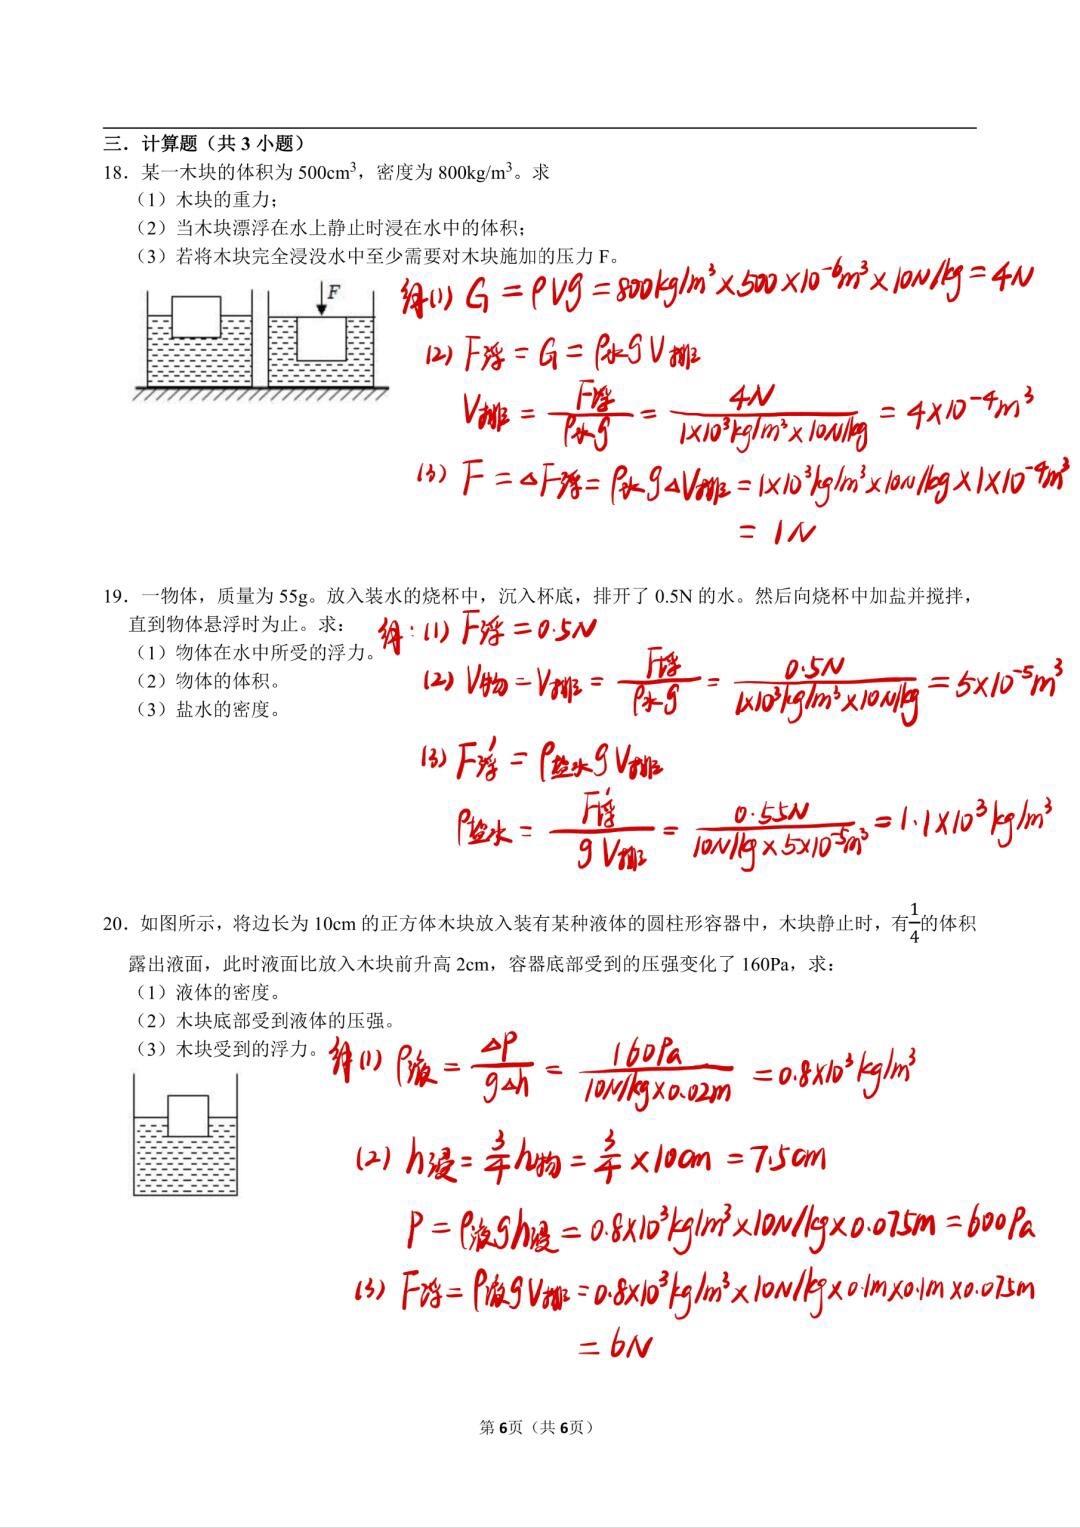 三．计算题（共 3 小题）
18．某一木块的体积为 500cm³，密度为 800kg/m³。求
（1）木块的重力；
（2）当木块漂浮在水上静止时浸在水中的体积；
（3）若将木块完全浸没水中至少需要对木块施加的压力 F。
F
解(1) G = ρVg = 800kg/m³×500×10⁻⁶m³×10N/kg = 4N
(2) F浮 = G = ρ水gV排
V排 = F浮/ρ水g = 4N/1×10³kg/m³×10N/kg = 4×10⁻⁴m³
(3) F = △F浮 = ρ水g△V排 = 1×10³kg/m³×10N/kg×1×10⁻⁴m³
= 1N
19．一物体，质量为 55g。放入装水的烧杯中，沉入杯底，排开了 0.5N 的水。然后向烧杯中加盐并搅拌，
直到物体悬浮时为止。求：
（1）物体在水中所受的浮力。
（2）物体的体积。
（3）盐水的密度。
解：(1) F浮 = 0.5N
(2) V物 = V排 = F浮/ρ水g = 0.5N/1×10³kg/m³×10N/kg = 5×10⁻⁵m³
(3) F浮′ = ρ盐水gV排
ρ盐水 = F浮′/gV排 = 0.55N/10N/kg×5×10⁻⁵m³ = 1.1×10³kg/m³
20．如图所示，将边长为 10cm 的正方体木块放入装有某种液体的圆柱形容器中，木块静止时，有1/4的体积
露出液面，此时液面比放入木块前升高 2cm，容器底部受到的压强变化了 160Pa，求：
（1）液体的密度。
（2）木块底部受到液体的压强。
（3）木块受到的浮力。
解(1) ρ液 = △P/g△h = 160Pa/10N/kg×0.02m = 0.8×10³kg/m³
(2) h浸 = 3/4h物 = 3/4×10cm = 7.5cm
P = ρ液gh浸 = 0.8×10³kg/m³×10N/kg×0.075m = 600Pa
(3) F浮 = ρ液gV排 = 0.8×10³kg/m³×10N/kg×0.1m×0.1m×0.075m
= 6N
第 6页（共 6页）